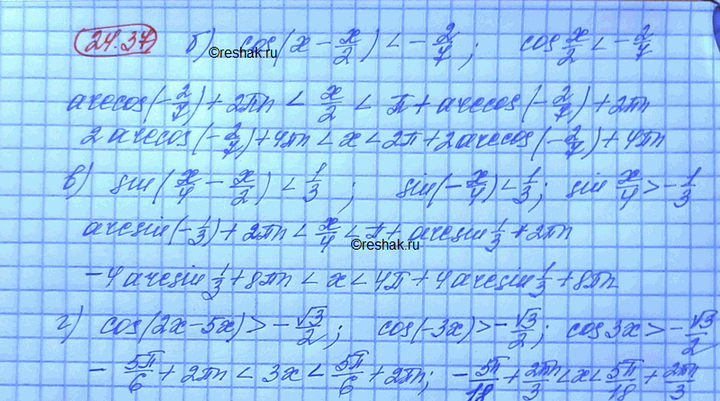 24.37 б) cos(x - x/2) < -2/7; cos x/2 < -2/7
©reshak.ru
arccos(-2/7) + 2πn < x/2 < π + arccos(-2/7) + 2πn
2arccos(-2/7) + 4πn < x < 2π + 2arccos(-2/7) + 4πn
в) sin(x/4 - x/2) < 1/3; sin(-x/4) < 1/3; sin x/4 > -1/3
arcsin(-1/3) + 2πn < x/4 < π + arcsin 1/3 + 2πn
©reshak.ru
-4arcsin 1/3 + 8πn < x < 4π + 4arcsin 1/3 + 8πn
г) cos(2x - 5x) > -√3/2; cos(-3x) > -√3/2; cos 3x > -√3/2
-5π/6 + 2πn < 3x < 5π/6 + 2πn; -5π/18 + 2πn/3 < x < 5π/18 + 2πn/3